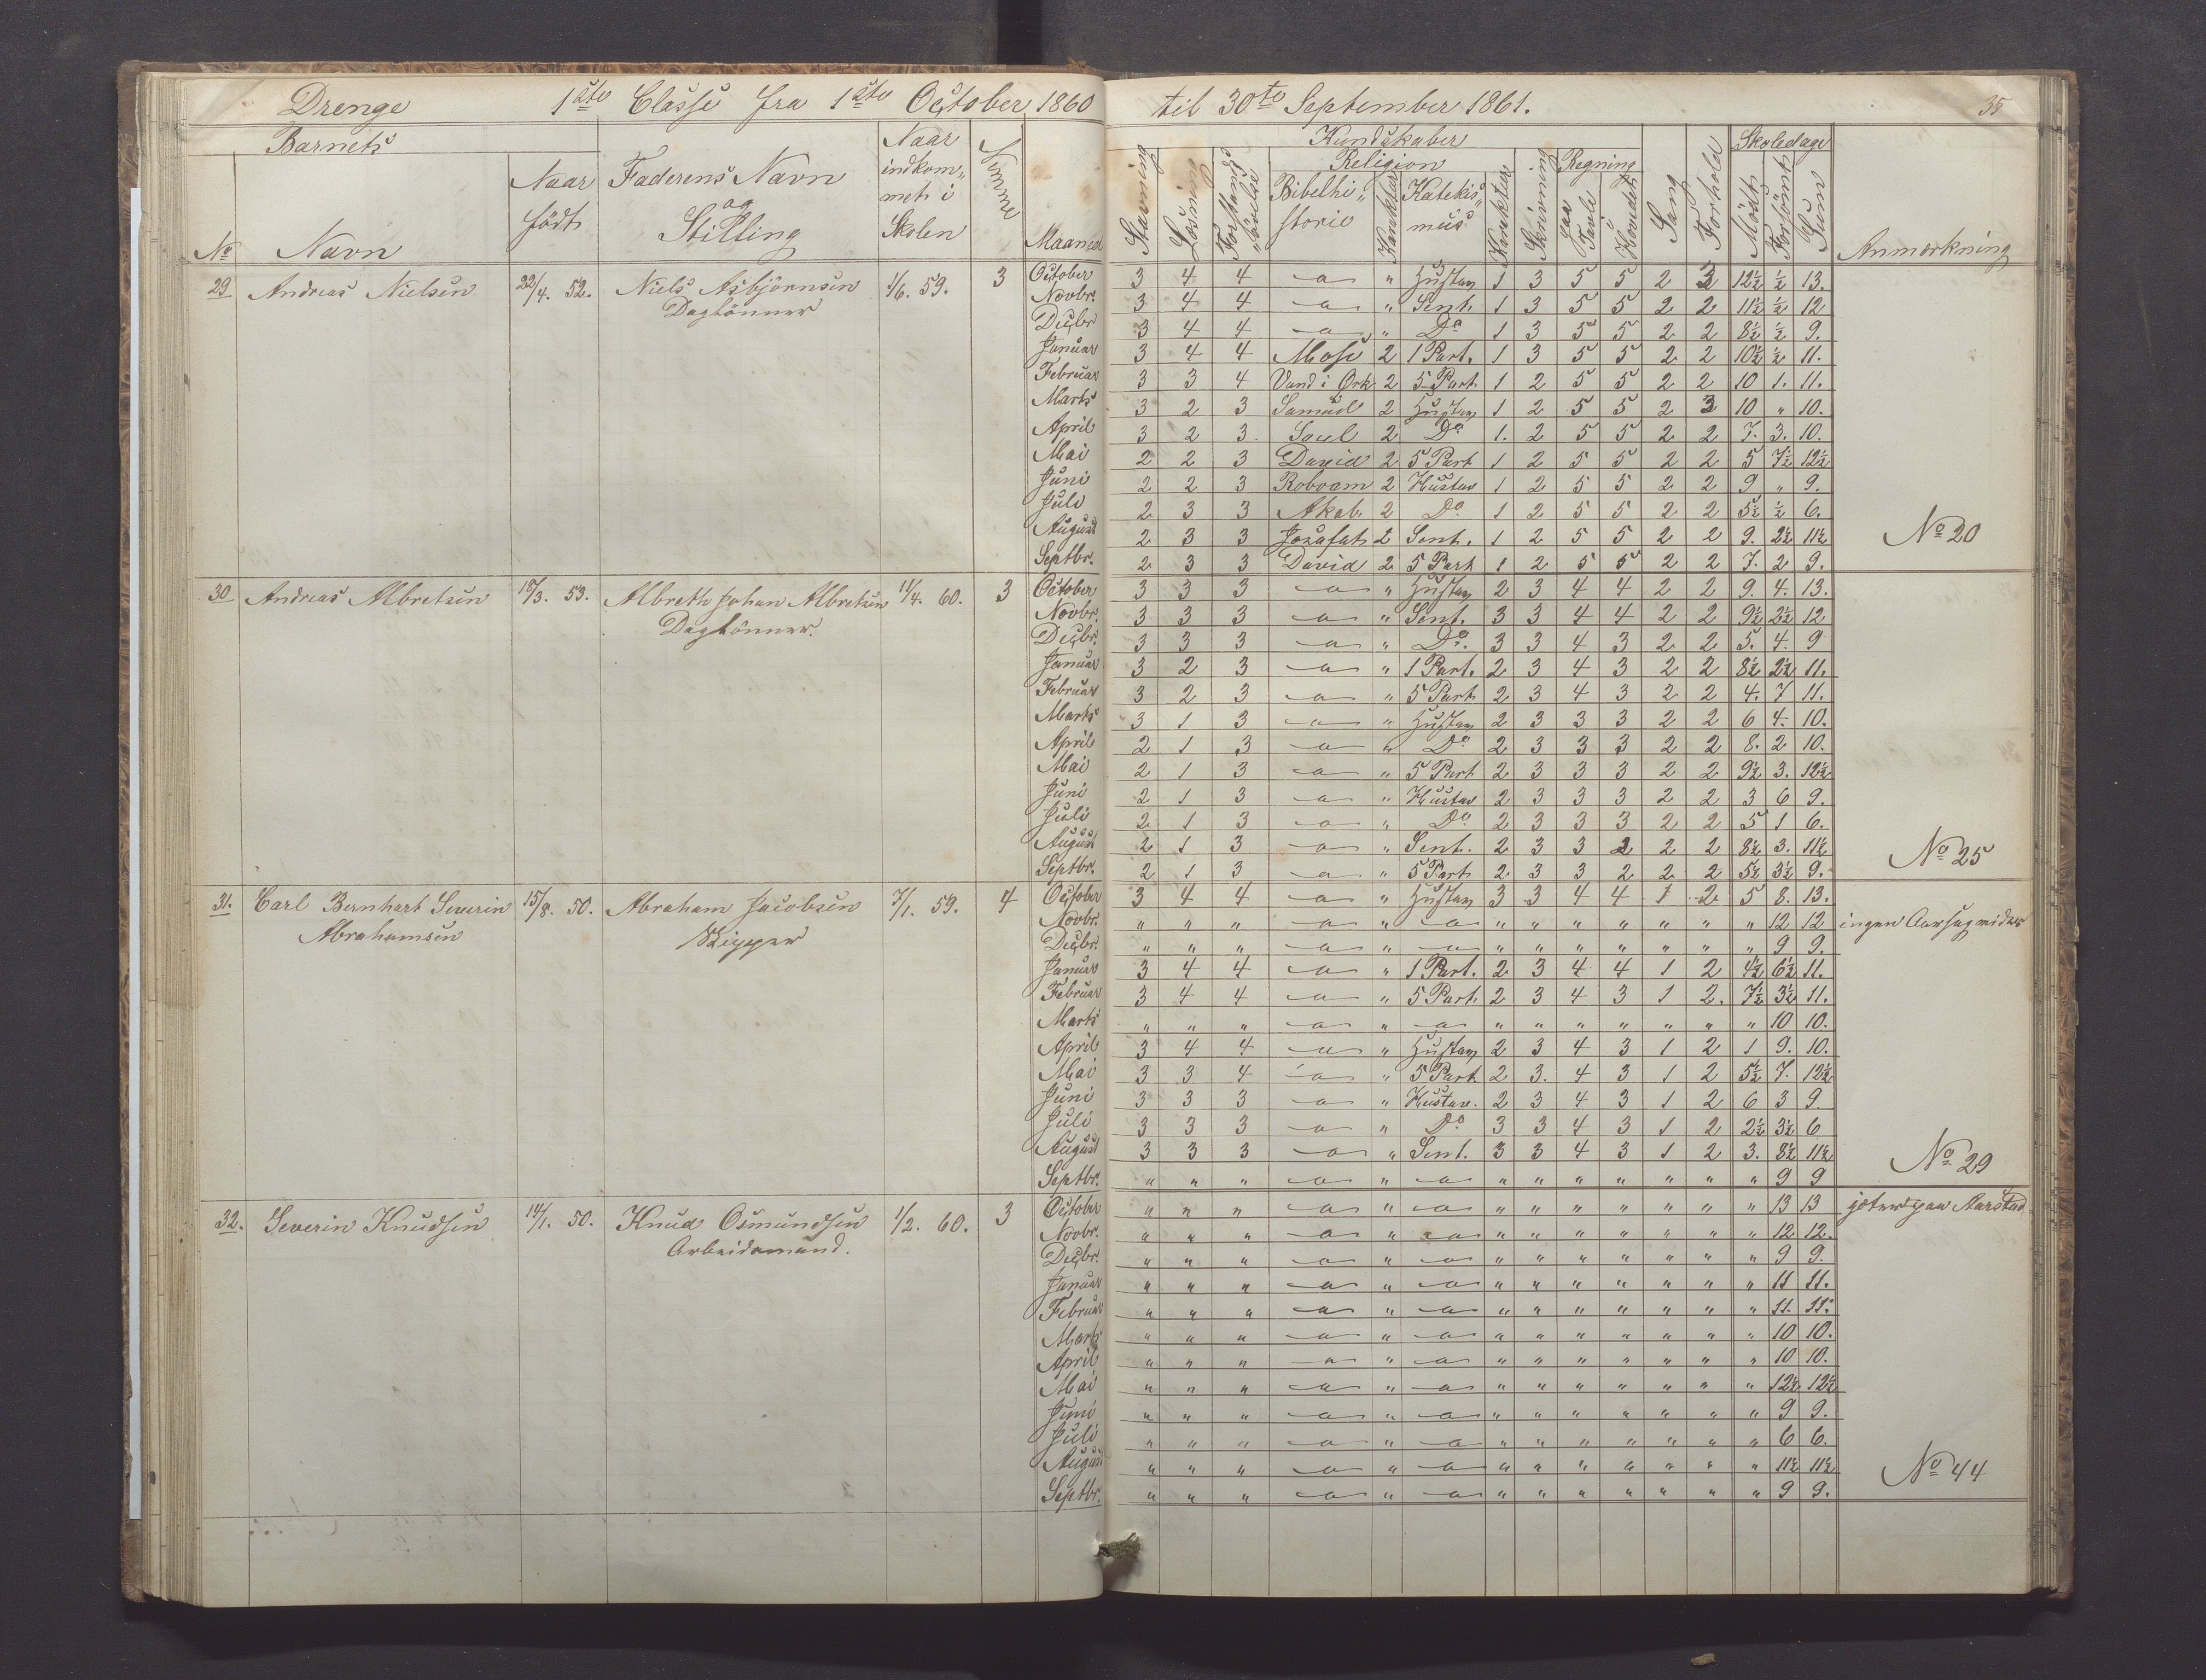 Drenge 1ste Classe fra 1ste October 1860 til 30te September 1861. 35
Barnets Naar Kundskaber Skoledage
Naar Faderens Navn indkom„ Nemme Religion Regning
født og met i Stavning Læsning Forstands Øvelse Bibelhi„ Karakter Katekis„ Karakter Skrivning paa Tavle i Hovedet Sang Forhold Mødt Forsømt Sum
No Navn Stilling Skolen Maaned storie mus Anmærkning
29 Andreas Nielsen 22/4. 52. Niels Asbjörnsen 1/6. 59. 3 October 3 4 4 " " Hustav 1 3 5 5 2 3 12½ ½ 13.
Daglönner Novbr. 3 4 4 " " Sent. 1 3 5 5 2 2 11½ ½ 12
Decbr 3 4 4 " " Do 1 3 5 5 2 2 8½ ½ 9.
Januar 3 4 4 Mose 2 1 Part. 1 3 5 5 2 2 10½ ½ 11.
Februar 3 3 4 Vand i Ørk 2 5 Part 1 2 5 5 2 2 10 1. 11.
Marts 3 2 3 Samuel 2 Hustav 1 2 5 5 2 3 10 " 10.
April 3 2 3. Saul 2 Do 1. 2 5 5 2 2 7. 3. 10.
Mai 2 2 3 David 2 5 Part 1 2 5 5 2 2 5 7½ 12½
Juni 2 2 3 Roboam 2 Hustav 1 2 5 5 2 2 9 " 9.
Juli 2 3 3 Akab. 2 Do. 1 2 5 5 2 2 5½ ½ 6.
August 2 3 3 Josafat 2 Sent. 1 2 5 5 2 2 9. 2½ 11½ No 20
Septbr. 2 3 3 David 2 5 Part 1 2 5 5 2 2 7. 2 9.
30 Andreas Albretsen 18/3. 53. Albreth Johan Albretsen 11/4. 60. 3 October 3 3 3 " " Hustav 2 3 4 4 2 2 9. 4. 13.
Daglönner. Novbr. 3 3 3 " " Sent. 3 3 4 4 2 2 9½ 2½ 12
Decbr. 3 3 3 " " Do. 3 3 4 3 2 2 5. 4. 9
Januar 3 2 3 " " 1 Part. 2 3 4 3 2 2 8½ 2½ 11.
Februar 3 2 3 " " 5 Part 2 3 4 3 2 2 4. 7 11.
Marts 3 1 3 " " Hustav 2 3 3 3 2 2 6 4. 10.
April 2 1 3 " " Do. 2 3 3 3 2 2 8. 2 10.
Mai 2 1 3 " " 5 Part 2 3 3 3 2 2 9½ 3. 12½
Juni 2 1 3 " " Hustav 2 3 3 3 2 2 3 6 9.
Juli 2 1 3 " " Do. 2 3 3 3 2 2 5 1 6.
August 2 1 3 " " Sent. 2 3 3 2 2 2 8½ 3. 11½ No 25
Septbr. 2 1 3 " " 5 Part 2 3 3 2 2 2 5½ 3½ 9.
31. Carl Bernhart Severin 15/8. 50. Abraham Jacobsen 7/1. 59. 4 October 3 4 4 " " Hustav 3 3 4 4 1 2 5 8. 13.
Abrahamsen Skipper Novbr. " " " " " " " " " " " " " 12 12 ingen
Decbr. " " " " " " " " " " " " " 9 9.
Januar 3 4 4 " " 1 Part. 2 3 4 4 1 2 4½ 6½ 11.
Februar 3 4 4 " " 5 Part. 2 3 4 3 1 2. 7½ 3½ 11.
Marts " " " " " " " " " " " " " 10 10.
April 3 4 4 " " Hustav 2 3 4 3 1 2 1 9. 10.
Mai 3 3 4 " " 5 Part. 2 3. 4 3 1 2 5½ 7. 12½
Juni 3 3 3 " " Hustav. 2 3 4 3 1 2 6 3 9.
Juli 3 3 3 " " Do 3 3 4 3 1 2 2½ 3½ 6
August 3 3 3 " " Sent. 3 3 4 3 1 2 3. 8½ 11½ No 29
Septbr. " " " " " " " " " " " " " 9 9
32. Severin Knudsen 14/1. 50. Knud Osmundsen 1/2. 60. 3 October " " " " " " " " " " " " " 13 13 gjæter paa Aarstad
Arbeidsmand. Novbr. " " " " " " " " " " " " " 12 12.
Decbr. " " " " " " " " " " " " " 9 9.
Januar " " " " " " " " " " " " " 11 11.
Februar " " " " " " " " " " " " " 11. 11.
Marts " " " " " " " " " " " " " 10 10.
April " " " " " " " " " " " " " 10 10.
Mai " " " " " " " " " " " " " 12½ 12½
Juni " " " " " " " " " " " " " 9 9.
Juli " " " " " " " " " " " " " 6 6.
August " " " " " " " " " " " " " 11½ 11½ No 44
Septbr. " " " " " " " " " " " " " 9 9.